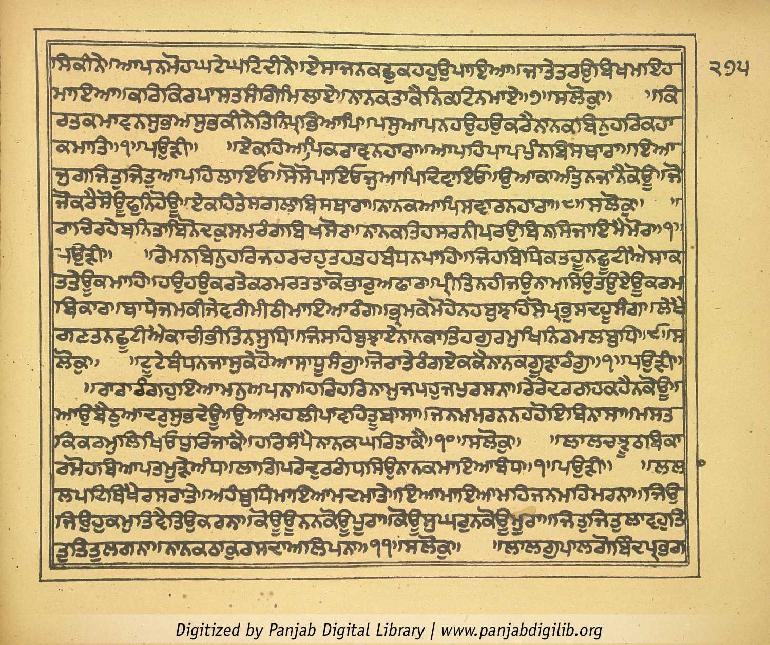 ਸਿਕੀਨੇ॥ਆਪਨਮੋਹਘਟੇਘਟਿਦੀਨੇ॥ਏਸਾਜਨਕਛੁਕਹਹੁਉਪਾਇਆ॥ਜਾਤੇਤਰਉਬਿਖਮਇਹ
ਮਾਇਆ॥ਕਰਿਕਿਰਪਾਸਤਸੰਗਿਮਿਲਾਏ॥ਨਾਨਕਤਾਕੈਨਿਕਟਿਨਮਾਏ॥੭॥ਸਲੋਕੁ॥ ॥ਕਿ
ਰਤਕਮਾਵਨਸੁਭਅਸੁਭਕੀਨੇਤਿਨਿਪ੍ਰਭਿਆਪਿ॥ਪਸੁਆਪਨਹਉਹਉਕਰੈਨਾਨਕਬਿਨੁਹਰਿਕਹਾ
ਕਮਾਤਿ॥੧॥ਪਉੜੀ॥ ॥ਏਕਹਿਆਪਿਕਰਾਵਨਹਾਰਾ॥ਆਪਹਿਪਾਪਪੁੰਨਬਿਸਥਾਰਾ॥ਇਆ
ਜੁਗਜਿਤੁਜਿਤੁਆਪਹਿਲਾਇਓ॥ਸੋਸੋਪਾਇਓਜੁਆਪਿਦਿਵਾਇਓ॥ਉਆਕਾਅੰਤੁਨਜਾਨੈਕੋਊ॥ਜੋ
ਜੋਕਰੈਸੋਊਫੁਨਿਹੋਊ॥ਏਕਹਿਤੇਸਗਲਾਬਿਸਥਾਰਾ॥ਨਾਨਕਆਪਿਸਵਾਰਨਹਾਰਾ॥੮॥ਸਲੋਕੁ॥ ॥
ਰਾਚਿਰਹੇਬਨਿਤਾਬਿਨੋਦਕੁਸਮਰੰਗਬਿਖਸੋਰ॥ਨਾਨਕਤਿਹਸਰਨੀਪਰਉਬਿਨਸਿਜਾਇਮੈਮੋਰ॥੧॥
ਪਉੜੀ॥ ॥ਰੇਮਨਬਿਨੁਹਰਿਜਹਰਚਹੁਤਹਤਹਬੰਧਨਪਾਹਿ॥ਜਿਹਬਿਧਿਕਤਹੂਨਛੂਟੀਐਸਾਕ
ਤਤੇਊਕਮਾਹਿ॥ਹਉਹਉਕਰਤੇਕਰਮਰਤਤਾਕੋਭਾਰੁਅਫਾਰ॥ਪ੍ਰੀਤਿਨਹੀਜਉਨਾਮਸਿਉਤਉਏਊਕਰਮ
ਬਿਕਾਰ॥ਬਾਧੇਜਮਕੀਜੇਵਰੀਮੀਠੀਮਾਇਆਰੰਗ॥ਭ੍ਰਮਕੇਮੋਹੇਨਹਬੁਝਹਿਸੋਪ੍ਰਭੁਸਦਹੂਸੰਗ॥ਲੇਖੈ
ਗਣਤਨਛੂਟੀਐਕਾਚੀਭੀਤਿਨਸੁਧਿ॥ਜਿਸਹਿਬੁਝਾਏਨਾਨਕਾਤਿਹਗੁਰਮੁਖਿਨਿਰਮਲਬੁਧਿ॥੯॥ਸ
ਲੋਕੁ॥ ॥ਟੂਟੇਬੰਧਨਜਾਸੁਕੇਹੋਆਸਾਧੂਸੰਗੁ॥ਜੋਰਾਤੇਰੰਗਏਕਕੈਨਾਨਕਗੂੜਾਰੰਗੁ॥੧॥ਪਉੜੀ॥
॥ਰਾਰਾਰੰਗਹੁਇਆਮਨੁਅਪਨਾ॥ਹਰਿਹਰਿਨਾਮੁਜਪਹੁਜਪੁਰਸਨਾ॥ਰੇਰੇਦਰਗਹਕਹੈਨਕੋਊ॥
ਆਉਬੈਠੁਆਦਰੁਸੁਭਦੇਊ॥ਉਆਮਹਲੀਪਾਵਹਿਤੂਬਾਸਾ॥ਜਨਮਮਰਨਨਹਹੋਇਬਿਨਾਸਾ॥ਮਸਤ
ਕਿਕਰਮੁਲਿਖਿਓਧੁਰਿਜਾਕੈ॥ਹਰਿਸੰਪੈਨਾਨਕਘਰਿਤਾਕੈ॥੧੦॥ਸਲੋਕੁ॥ ॥ਲਾਲਚਝੂਠਬਿਕਾ
ਰਮੋਹਬਿਆਪਤਮੂੜੇਅੰਧ॥ਲਾਗਿਪਰੇਦੁਰਗੰਧਸਿਉਨਾਨਕਮਾਇਆਬੰਧ॥੧॥ਪਉੜੀ॥ ॥ਲਲ
ਲਪਟਿਬਿਖੈਰਸਰਾਤੇ॥ਅਹੰਬੁਧਿਮਾਇਆਮਦਮਾਤੇ॥ਇਆਮਾਇਆਮਹਿਜਨਮਹਿਮਰਨਾ॥ਜਿਉ
ਜਿਉਹੁਕਮੁਤਿਵੈਤਿਉਕਰਨਾ॥ਕੋਊਊਨਨਕੋਊਪੂਰਾ॥ਕੋਊਸੁਘਰੁਨਕੋਊਮੂਰਾ॥ਜਿਤੁਜਿਤੁਲਾਵਹੁਤਿ
ਤੁਤਿਤੁਲਗਨਾ॥ਨਾਨਕਠਾਕੁਰਸਦਾਅਲਿਪਨਾ॥੧੧॥ਸਲੋਕੁ॥ ॥ਲਾਲਗੁਪਾਲਗੋਬਿੰਦਪ੍ਰਭਗ
੨੭੫
Digitized by Panjab Digital Library | www.panjabdigilib.org